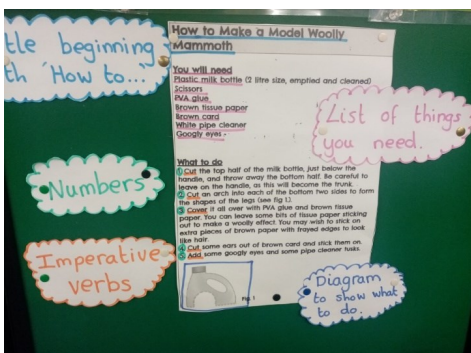 tle beginning
th 'How to...'
How to Make a Model Woolly
Mammoth
You will need
Plastic milk bottle (2 litre size, emptied and cleaned)
Scissors
PVA glue
Brown tissue paper
Brown card
White pipe cleaner
Googly eyes
List of things
you need.
What to do
1 Cut the top half of the milk bottle, just below the
handle, and throw away the bottom half. Be careful to
leave on the handle, as this will become the trunk.
2 Cut an arch into each of the bottom two sides to form
the shapes of the legs (see fig 1.)
3 Cover it all over with PVA glue and brown tissue
paper. You can leave some bits of tissue paper sticking
out to make a woolly effect. You may wish to stick on
extra pieces of brown paper with frayed edges to look
like hair.
4 Cut some ears out of brown card and stick them on.
5 Add some googly eyes and some pipe cleaner tusks.
Fig. 1
Numbers
Imperative
verbs
Diagram
to show what
to do.